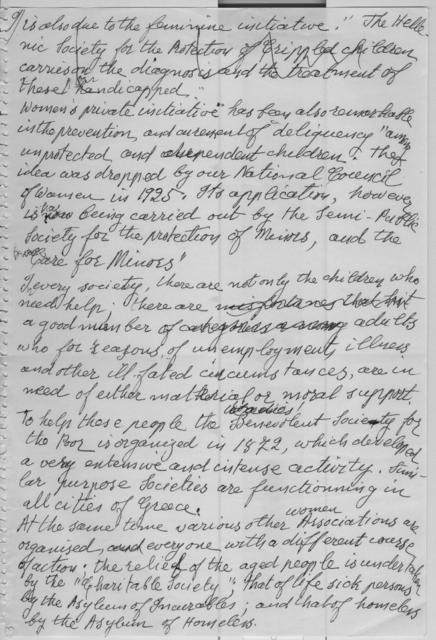 is also due to the feminine initiative." The Helle-
nic Society for the Protection of Crippled children
carries on the diagnosis and the treatment of
these handicapped."
Women's private initiative has been also remarkable
in the prevention and curement of deliquency "among
unprotected and dependent children. The
idea was dropped by our National Council
of Women in 1925. Its application, however
is being carried out by the Semi-Public
Society for the protection of Minors, and the
"Care for Minors"
In every society, there are not only the children who
need help; there are
a good number of adults
who for reasons of unemployment, illness
and other ill-fated circumstances, are in
need of either material or moral support.
To help those people the ladies' Benevolent Society for
the Poor is organized in 1872, which developed
a very extensive and intense activity. Simi-
lar purpose Societies are functionning in
all cities of Greece.
At the same time various other women Associations are
organised, and everyone with a different course
of action: the relief of the aged people is undertaken
by the "Charitable Society" that of life sick persons
by the Asylum of Incurables; and that of homeless
by the Asylum of Homeless.